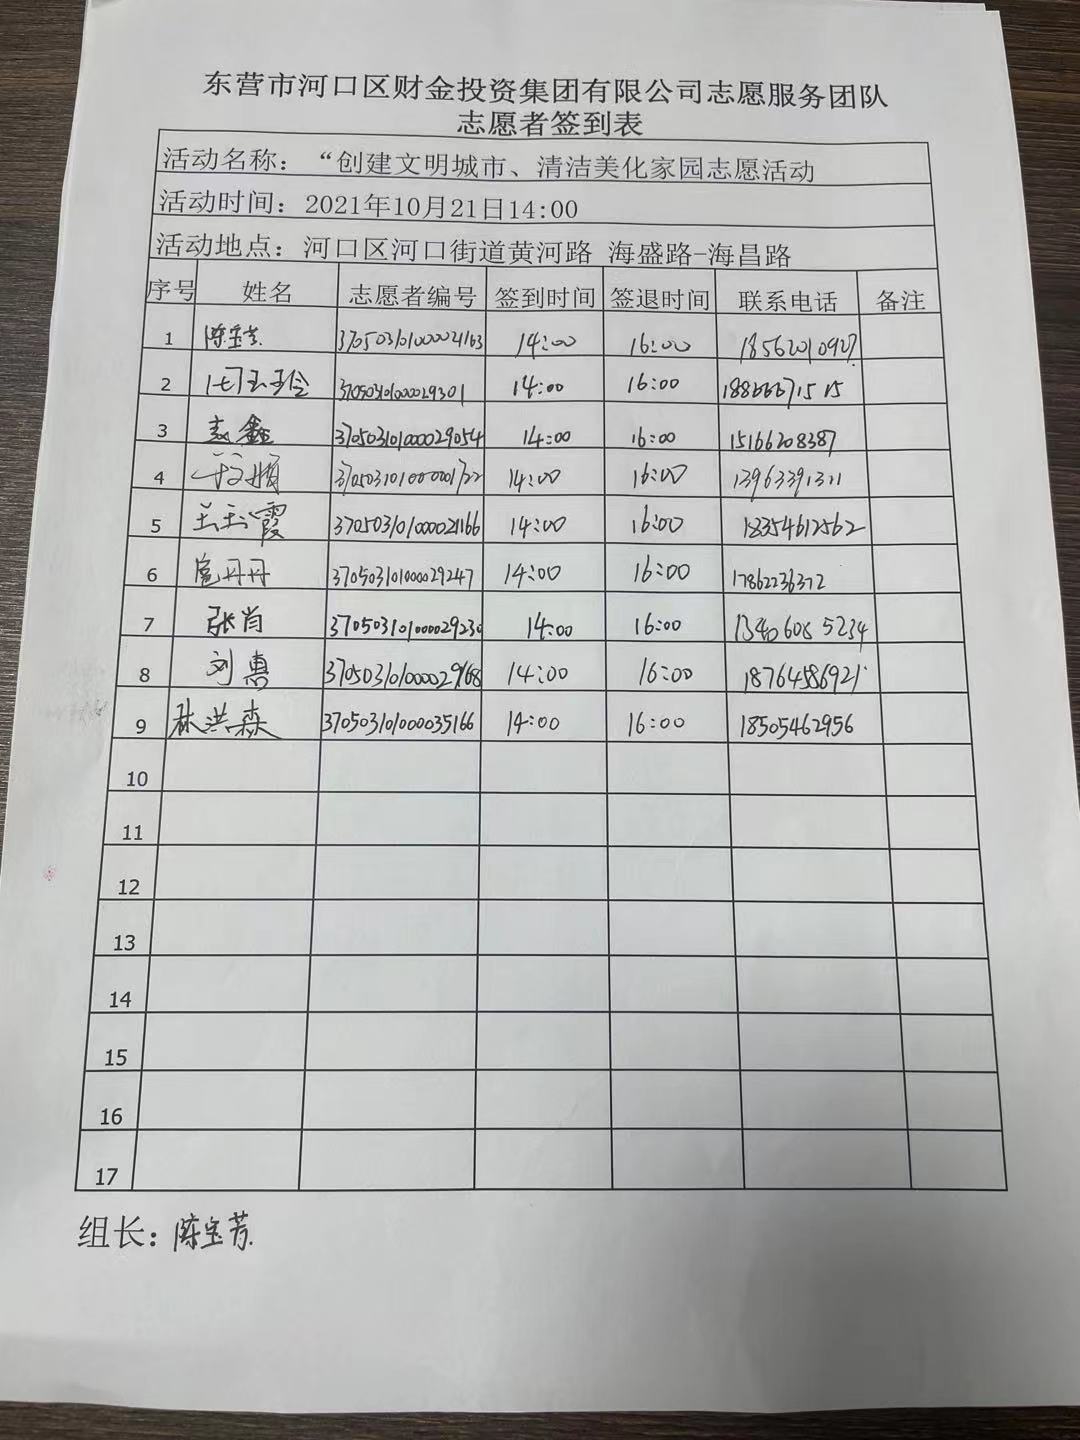 东营市河口区财金投资集团有限公司志愿服务团队
志愿者签到表
活动名称：“创建文明城市、清洁美化家园志愿活动
活动时间：2021年10月21日14:00
活动地点：河口区河口街道黄河路 海盛路-海昌路
序号 姓名 志愿者编号 签到时间 签退时间 联系电话 备注
1 陈宝芳 370503101000021163 14:00 16:00 18562010927
2 370503101000029301 14:00 16:00 18866671515
3 赵鑫 370503101000029054 14:00 16:00 15166208387
4 14:00 16:00 13963391311
5 王玉霞 370503101000021166 14:00 16:00 18354612562
6 扈丹丹 370503101000029247 14:00 16:00 17862236372
7 张肖 370503101000029230 14:00 16:00 13406085234
8 刘惠 370503101000029168 14:00 16:00 18764586921
9 林洪森 370503101000035166 14:00 16:00 18505462956
10
11
12
13
14
15
16
17
组长：陈宝芳